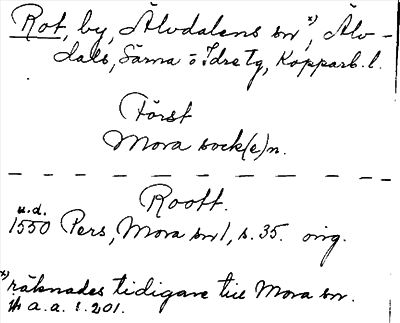 Rot, by, Älvdalens sn *), Älv-
dals, Särna o Idre tg, Kopparb. l.
Först
Mora sock(e)n.
Rott.
u.d.
1550 Pers, Mora sn 1, s. 35. orig.
*) räknades tidigare till Mora sn.
a. a. s. 201.